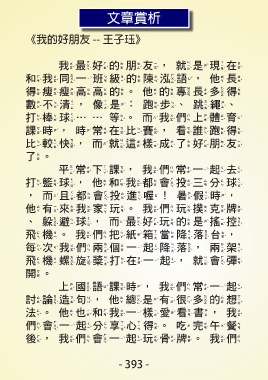 文章賞析
《我的好朋友 -- 王子玨》
我最好的朋友，就是現在
和我同一班級的陳泓語，他長
得瘦瘦高高的。他的專長多得
數不清，像是：跑步、跳繩、
打棒球⋯⋯等。而我們上體育
課時，時常在比賽，看誰跑得
比較快，而就這樣成了好朋友
了。
平常下課，我們常一起去
打籃球，他和我都會投三分球
，而且都會投進喔！暑假時，
他有來我家玩。我們玩撲克牌
、躲避球，而最好玩的是搖控
飛機。我們把紙箱當降落台，
每次我們兩個一起降落，兩架
飛機螺旋槳打在一起，就會彈
開。
上國語課時，我們常一起
討論造句，他總是有很多的想
法。他也和我一樣愛看書，我
們會一起分享心得。吃完午餐
後，我們會一起玩骨牌。我們
- 393 -